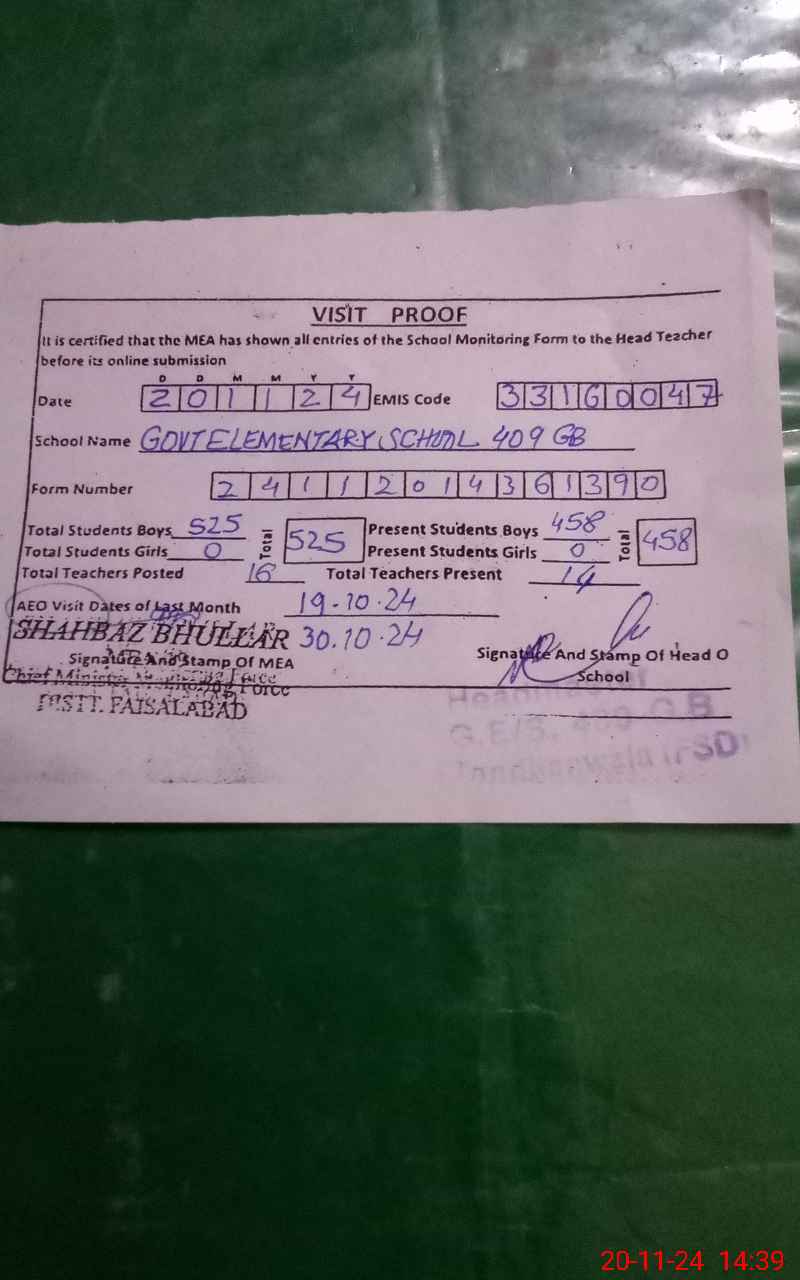 VISIT PROOF
It is certified that the MEA has shown all entries of the School Monitoring Form to the Head Teacher
before its online submission
D D M M Y Y
Date 2 0 1 1 2 4 EMIS Code 3 3 1 6 0 0 4 7
School Name GOVT ELEMENTARY SCHOOL 409 GB
Form Number 2 4 1 1 2 0 1 4 3 6 1 3 9 0
Total Students Boys 525 Total 525 Present Students Boys 458 Total 458
Total Students Girls 0 Present Students Girls 0
Total Teachers Posted 16 Total Teachers Present 14
AEO Visit Dates of Last Month 19-10-24
SHAHBAZ BHULLAR 30.10.24
Signature And Stamp Of MEA Signature And Stamp Of Head O
School
Chief Minister Monitoring Force
DISTT. FAISALABAD
G.E/S. 409 G.B
20-11-24 14:39